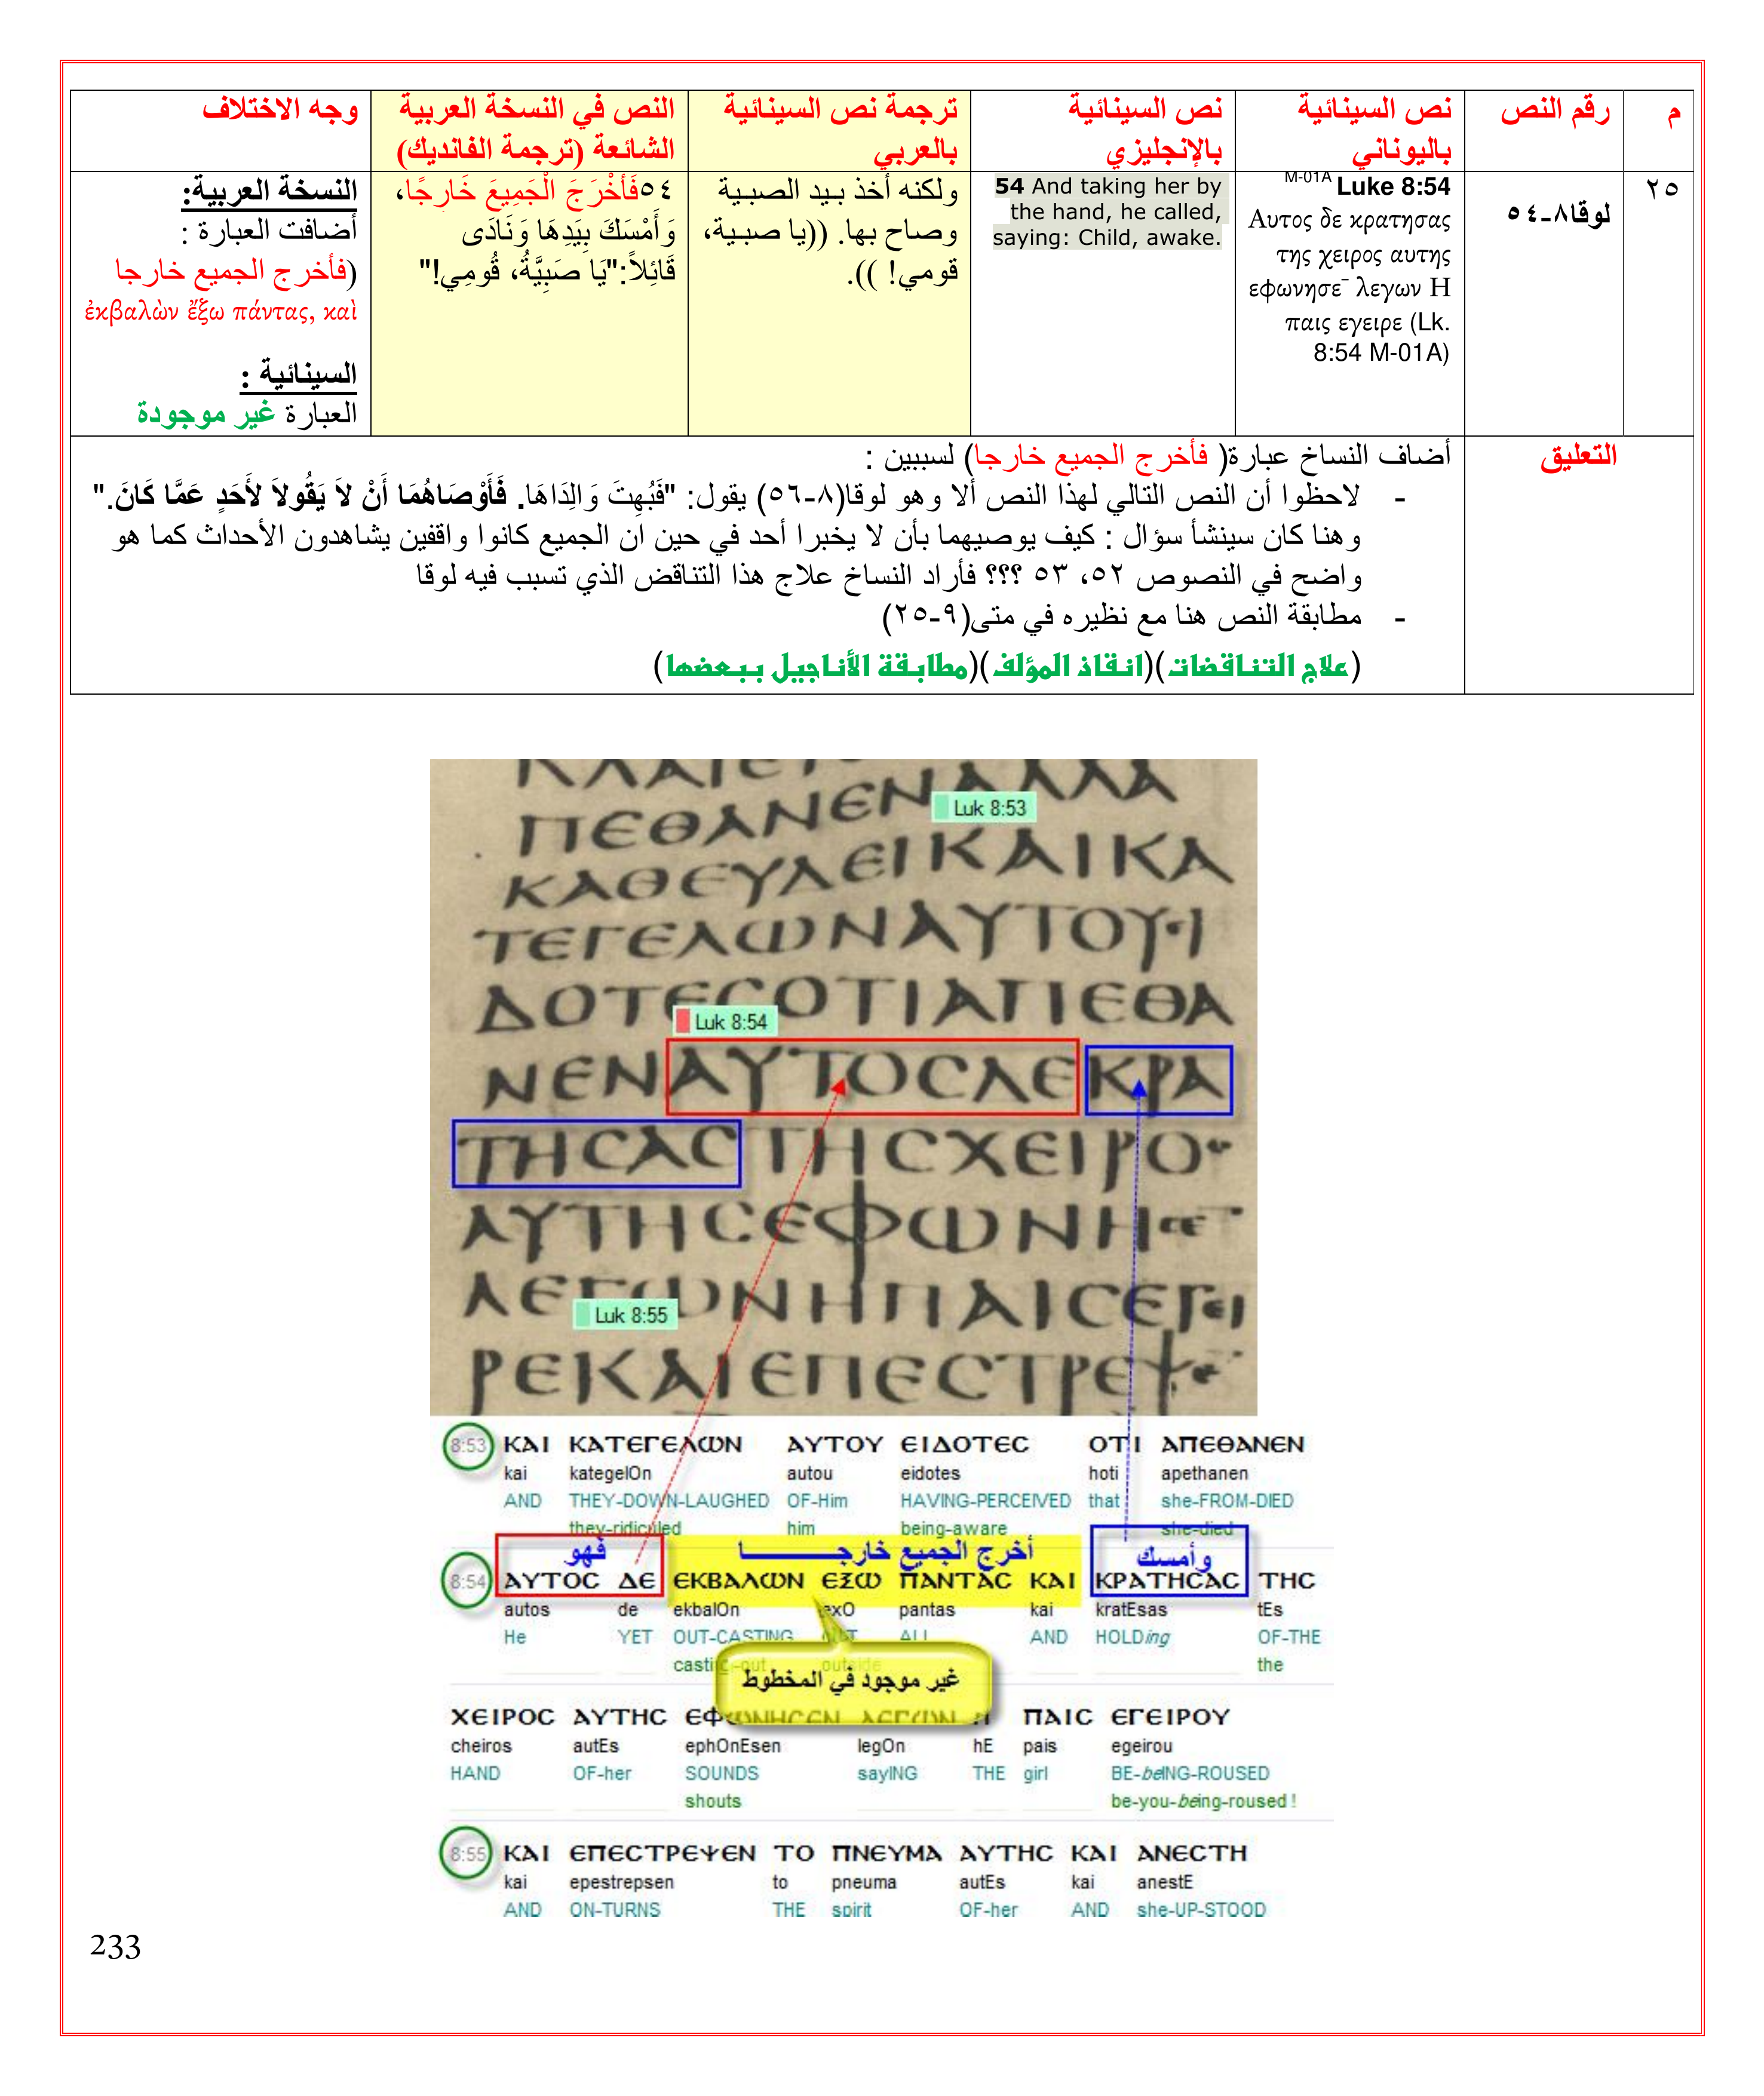 م
رقم النص
نص السينائية
باليوناني
نص السينائية
بالإنجليزي
ترجمة نص السينائية
بالعربي
النص في النسخة العربية
الشائعة (ترجمة الفانديك)
وجه الاختلاف
٢٥
لوقا٨-٥٤
M-01A Luke 8:54
Αυτος δε κρατησας
της χειρος αυτης
εφωνησε¯ λεγων Η
παις εγειρε (Lk.
8:54 M-01A)
54 And taking her by
the hand, he called,
saying: Child, awake.
ولكنه أخذ بيد الصبية
وصاح بها. ((يا صبية،
قومي! )).
٥٤فَأَخْرَجَ الْجَمِيعَ خَارِجًا،
وَأَمْسَكَ بِيَدِهَا وَنَادَى
قَائِلاً:"يَا صَبِيَّةُ، قُومِي!"
النسخة العربية:
أضافت العبارة :
(فأخرج الجميع خارجا
ἐκβαλὼν ἔξω πάντας, καὶ
السينائية :
العبارة غير موجودة
التعليق
أضاف النساخ عبارة( فأخرج الجميع خارجا) لسببين :
- لاحظوا أن النص التالي لهذا النص ألا وهو لوقا(٨-٥٦) يقول: "فَبُهِتَ وَالِدَاهَا. فَأَوْصَاهُمَا أَنْ لاَ يَقُولاَ لأَحَدٍ عَمَّا كَانَ."
وهنا كان سينشأ سؤال : كيف يوصيهما بأن لا يخبرا أحد في حين ان الجميع كانوا واقفين يشاهدون الأحداث كما هو
واضح في النصوص ٥٢، ٥٣ ؟؟؟ فأراد النساخ علاج هذا التناقض الذي تسبب فيه لوقا
- مطابقة النص هنا مع نظيره في متى(٩-٢٥)
(علاج التناقضات)(انقاذ المؤلف)(مطابقة الأناجيل ببعضها)
ΠΕΘΑΝΕΝΑΛΛΑ
Luk 8:53
ΚΑΘΕΥΔΕΙΚΑΙΚΑ
ΤΕΓΕΛΩΝΑΥΤΟΥΙ
ΔΟΤΕϹΟΤΙΑΠΕΘΑ
Luk 8:54
ΝΕΝΑΥΤΟϹΔΕΚΡΑ
ΤΗϹΑϹΤΗϹΧΕΙΡΟ
ΑΥΤΗϹΕΦΩΝΗϹΕ
ΛΕΓΩΝΗΠΑΙϹΕΓΕΙ
Luk 8:55
ΡΕΚΑΙΕΠΕϹΤΡΕΨΕ
8:53 ΚΑΙ ΚΑΤΕΓΕΛΩΝ ΑΥΤΟΥ ΕΙΔΟΤΕϹ ΟΤΙ ΑΠΕΘΑΝΕΝ
kai kategelOn autou eidotes hoti apethanen
AND THEY-DOWN-LAUGHED OF-Him HAVING-PERCEIVED that she-FROM-DIED
they-ridiculed him being-aware she-died
فهو أخرج الجميع خارجـــــــا وأمسك
8:54 ΑΥΤΟϹ ΔΕ ΕΚΒΑΛΩΝ ΕΞΩ ΠΑΝΤΑϹ ΚΑΙ ΚΡΑΤΗϹΑϹ ΤΗϹ
autos de ekbalOn exO pantas kai kratEsas tEs
He YET OUT-CASTING OUT ALL AND HOLDing OF-THE
casting-out outside the
غير موجود في المخطوط
ΧΕΙΡΟϹ ΑΥΤΗϹ ΕΦΩΝΗϹΕΝ ΛΕΓΩΝ Η ΠΑΙϹ ΕΓΕΙΡΟΥ
cheiros autEs ephOnEsen legOn hE pais egeirou
HAND OF-her SOUNDS sayING THE girl BE-beING-ROUSED
shouts be-you-being-roused !
8:55 ΚΑΙ ΕΠΕϹΤΡΕΨΕΝ ΤΟ ΠΝΕΥΜΑ ΑΥΤΗϹ ΚΑΙ ΑΝΕϹΤΗ
kai epestrepsen to pneuma autEs kai anestE
AND ON-TURNS THE spirit OF-her AND she-UP-STOOD
233